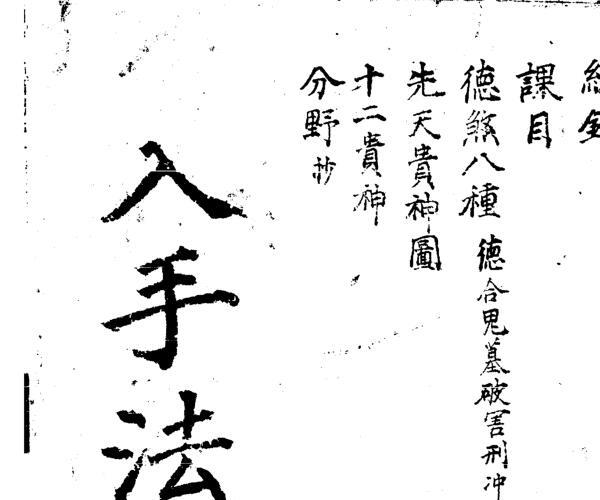 課目
德煞八種 德合鬼墓破害刑冲
先天貴神圖
十二貴神
分野抄
入手法